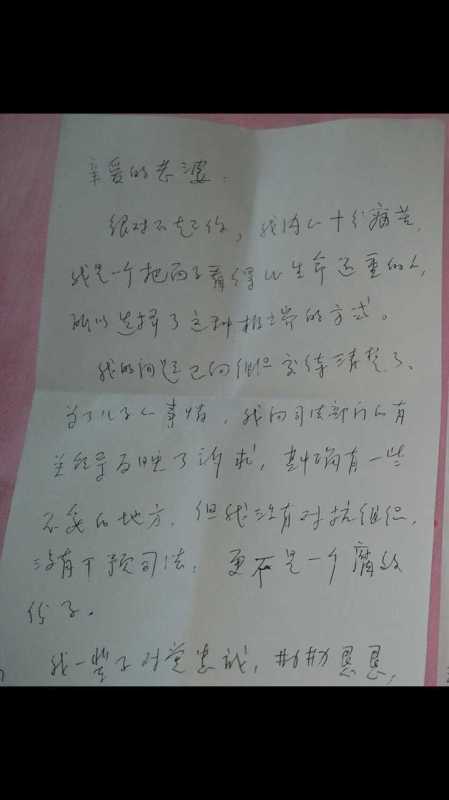 亲爱的老婆：
很对不起你，我内心十分痛苦，
我是一个把面子看得比生命还重的人，
所以选择了这种极端的方式。
我的问题已向组织交待清楚了、
为了儿子的事情，我向司法部门的有
关领导反映了诉求，其中确有一些
不妥的地方，但我没有对抗组织，
没有干预司法，更不是一个腐败
份子。
我一辈子对党忠诚，勤勤恳恳，